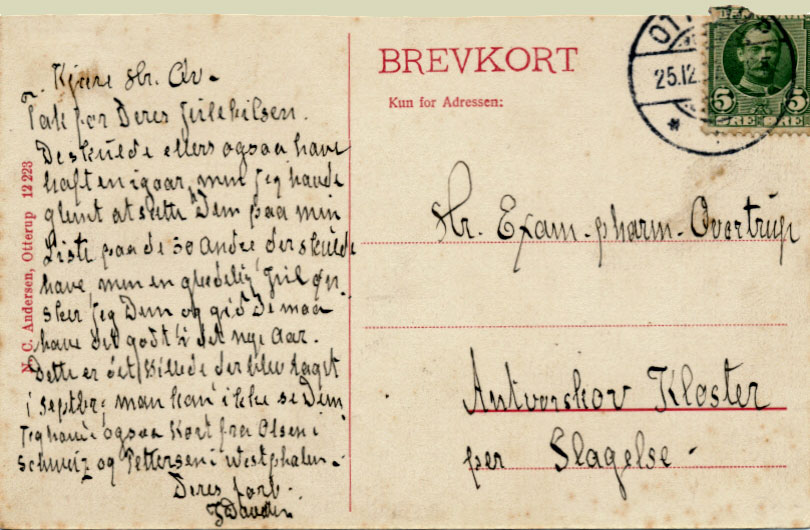 Kjære Hr. Ov-
Tak for Deres Julehilsen.
De skulde ellers ogsaa have
haft en igaar, men jeg havde
glemt at sætte Dem paa min
Liste paa de 30 Andre der skulde
have, men en glædelig Juul øn-
sker jeg Dem og gid De maa
have det godt i det nye Aar.
Dette er det Billede der blev taget
i Septbr; man kan ikke se Dem
Jeg ogsaa Kort fra Olsen i
Schweiz og Pettersen i Westphalen.
Deres forb.
N. C. Andersen, Otterup 12 223
BREVKORT
Kun for Adressen:
25.12
5 5
ØRE ØRE
Hr. Exam. pharm. Overtrup
Antvorskov Kloster
per Slagelse.